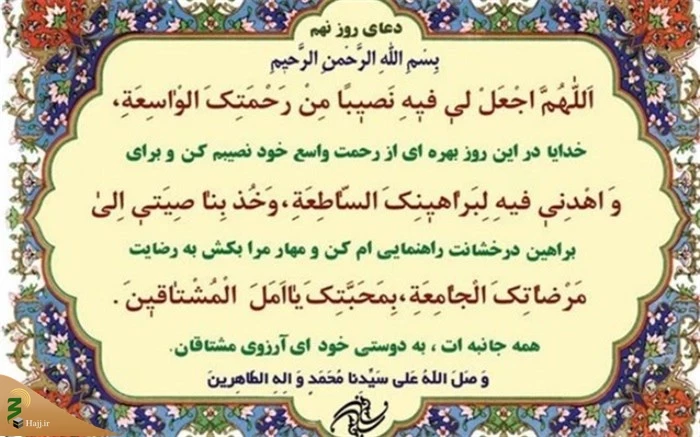 دعای روز نهم
بِسْمِ اللهِ الرَّحْمنِ الرَّحیمِ
اَللّٰهُمَّ اجْعَلْ لي فیهِ نَصیبًا مِنْ رَحْمَتِکَ الوْاسِعَةِ،
خدایا در این روز بهره ای از رحمت واسع خود نصیبم کن و برای
وَ اهْدِني فیهِ لِبَراهینِکَ السّاطِعَةِ، وَخُذ بِنا صِیَتي اِلیٰ
براهین درخشانت راهنمایی ام کن و مهار مرا بکش به رضایت
مَرْضاتِکَ الْجامِعَةِ، بِمَحَبَّتِکَ یااَمَلَ الْمُشْتاقینَ.
همه جانبه ات، به دوستی خود ای آرزوی مشتاقان.
وَ صَلَ اللهُ عَلی سَیِّدِنا مُحَمَدٍ وَ الِهِ الطّاهِرینَ
Hajj.ir